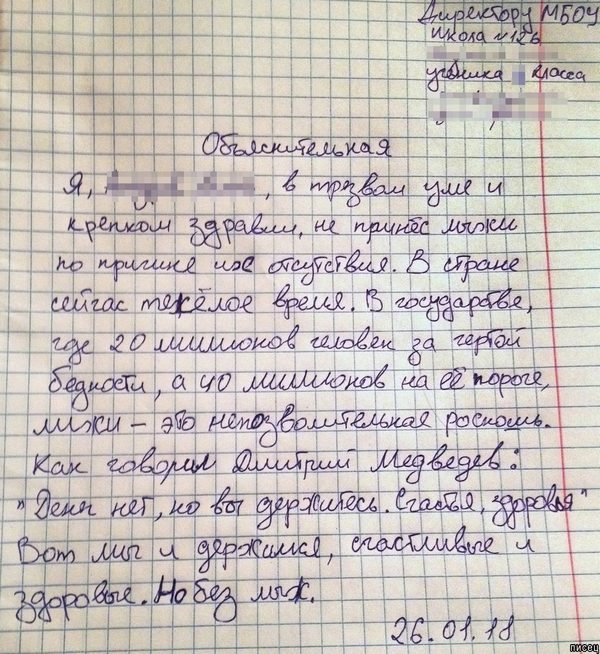 Директору МБОУ
школа №126
ученика класса
Объяснительная
Я, , в трезвом уме и
крепком здравии, не принёс лыжи
по причине их отсутствия. В стране
сейчас тяжёлое время. В государстве,
где 20 миллионов человек за чертой
бедности, а 40 миллионов на её пороге,
лыжи – это непозволительная роскошь.
Как говорил Дмитрий Медведев:
"Денег нет, но вы держитесь. Счастья, здоровья"
Вот мы и держимся, счастливые и
здоровые. Но без лыж.
26.01.18
писец